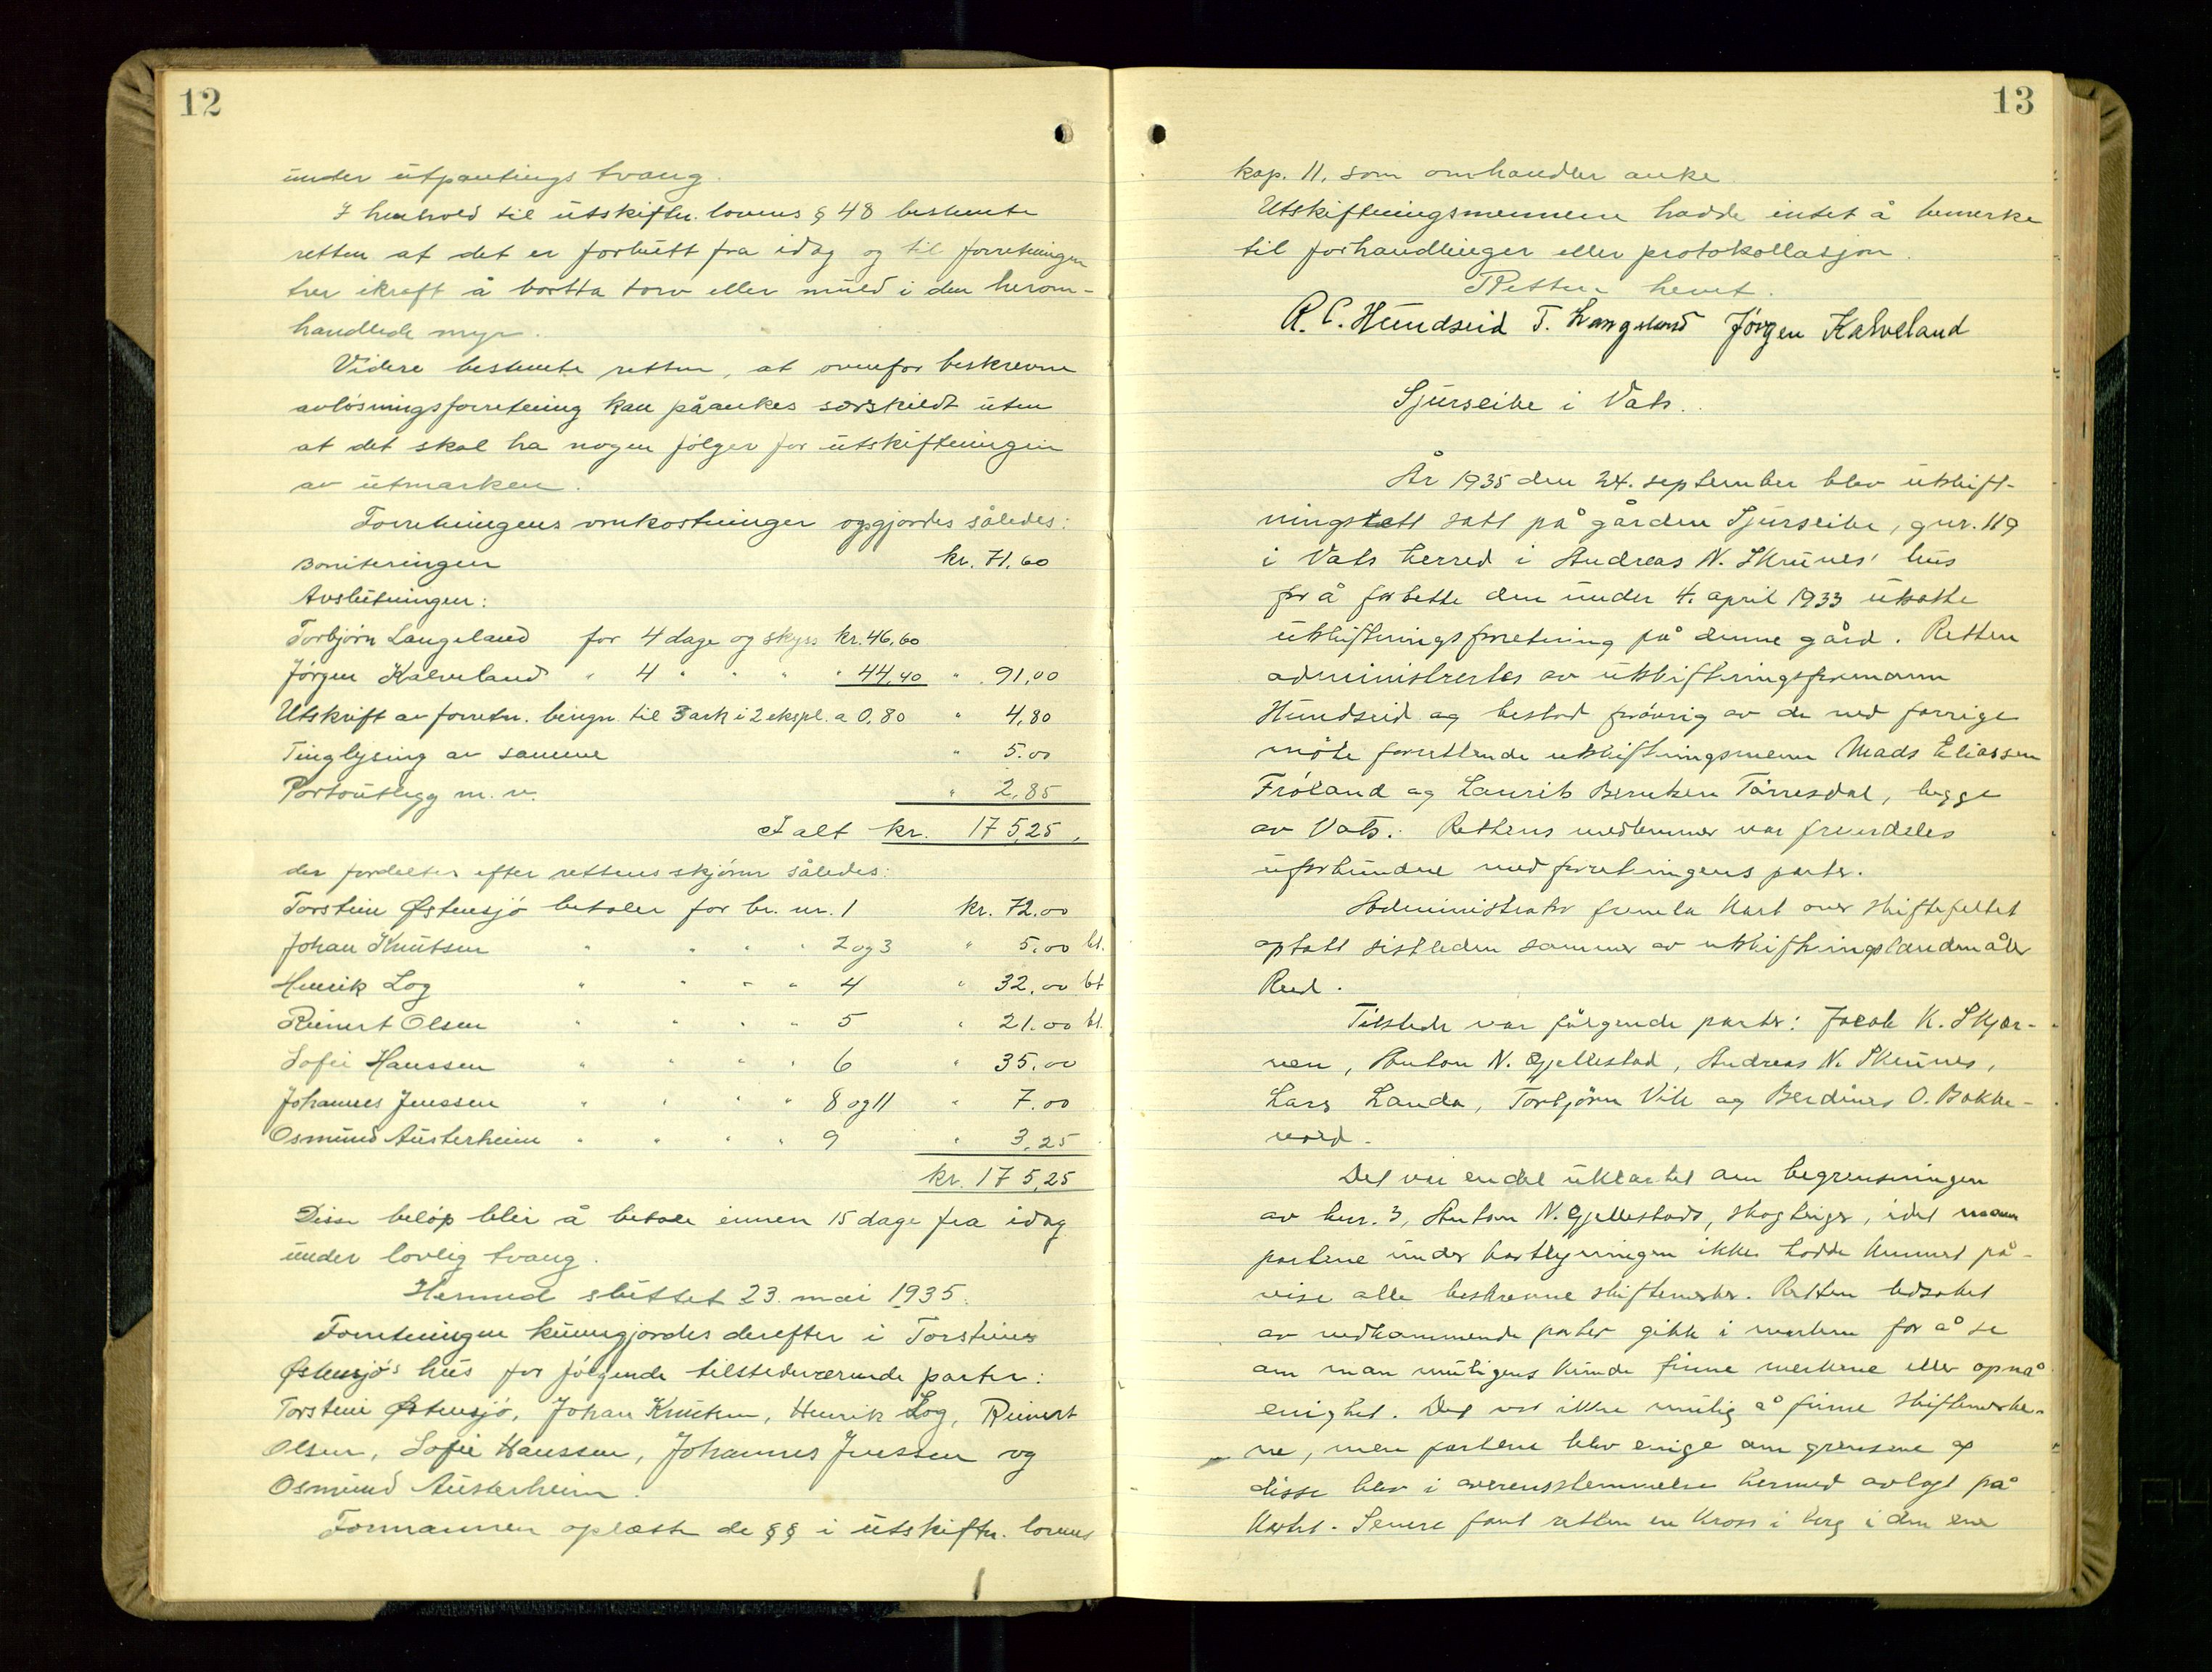 12
under utpantings tvang.
I henhold til utskiftn. lovens § 48 bestemte
retten at det er forbutt fra idag og til forretningen
trer ikraft å bortta torv eller muld i den herom-
handlede myr.
Videre bestemte retten, at ovenfor beskrevne
avløsningsforretning kan påankes særskildt uten
at det skal ha nogen følger for utskiftningen
av utmarken.
Forretningens omkostninger opgjordes således:
Boniteringen kr. 71,60
Avslutningen:
Torbjørn Langeland for 4 dage og skyss kr. 46,60
Jørgen Kalveland " 4 " " " " 44,40 " 91,00
Utskrift av forretn. beregn. til 3 ark i 2 ekspl. a 0,80 " 4,80
Tinglysing av samme " 5.00
Portoutlegg m. v. " 2,85
I alt kr. 175,25,
der fordeltes efter rettens skjønn således:
Torstein Østensjø betaler for br. nr. 1 kr. 72.00
Johan Knutsen " " " " 2 og 3 " 5.00 bt.
Henrik Log " " " " 4 " 32,00 bt
Reinert Olsen " " " " 5 " 21.00 bt.
Sofie Hanssen " " " " 6 " 35.00
Johannes Jenssen " " " " 8 og 11 " 7.00
Osmund Austerheim " " " " 9 " 3,25
kr. 175,25
Disse beløp blir å betale innen 15 dage fra idag
under lovlig tvang.
Hermed sluttet 23. mai 1935.
Forretningen kunngjordes derefter i Torstein
Østensjø's hus for følgende tilstedeværende parter:
Torstein Østensjø, Johan Knutsen, Henrik Log, Reinert
Olsen, Sofie Hanssen, Johannes Jenssen og
Osmund Austerheim.
Formannen oplæste de §§ i utskiftn. lovens
13
kap. 11, som omhandler anke.
Utskiftningsmennene hadde intet å bemerke
til forhandlinger eller protokollasjon.
Retten hevet.
R. C. Hundseid T. Langeland Jørgen Kalveland
Sjurseike i Vats.
År 1935 den 24. september blev utskift-
ningsrett satt på gården Sjurseike, gnr. 119
i Vats herred i Andreas N. Skrunes' hus
for å fortsette den under 4. april 1933 utsatte
utskiftningsforretning på denne gård. Retten
administrertes av utskiftningsformann
Hundseid og bestod forøvrig av de ved forrige
møte forrettende utskiftningsmenn Mads Eliassen
Frøland og Laurits Berntsen Tørresdal, begge
av Vats. Rettens medlemmer var fremdeles
uforbundne med forretningens parter.
Administrator fremla kart over skiftefeltet
optatt sistleden sommer av utskiftningslandmåler
Rud.
Tilstede var følgende parter: Jacob K. Skjær-
ven, Anton N. Gjellestad, Andreas N. Skrunes,
Lars Landa, Torbjørn Vik og Berdines O. Bakke-
vord.
Det var endel uklarhet om begrensningen
av bnr. 3, Anton N. Gjellestads, skogteiger, idet
partene under kartlegningen ikke hadde kunnet på-
vise alle beskrevne skiftemerker. Retten ledsaget
av vedkommende parter gikk i marken for å se
om man muligens kunde finne merkene eller opnå
enighet. Det var ikke mulig å finne skiftemerke-
ne, men partene blev enige om grensene og
disse blev i overensstemmelse hermed avlagt på
kartet. Senere fant retten en kross i berg i den ene